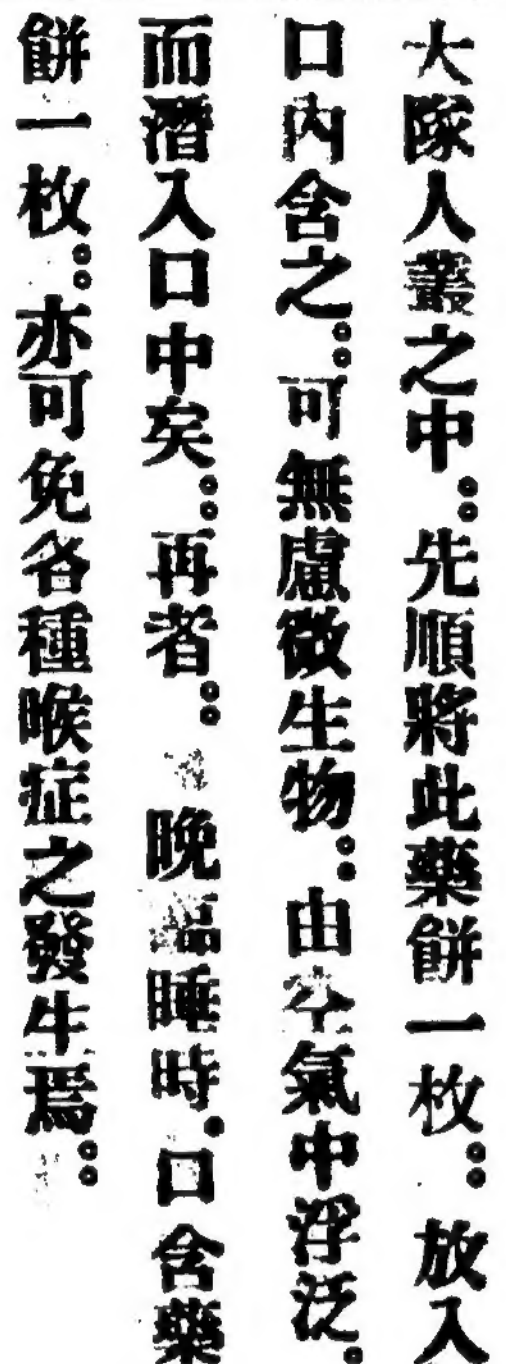 大隊人叢之中。先順將此藥餅一枚。放入
口內含之。可無慮微生物。由空氣中浮泛。
而潛入口中矣。再者。晚臨睡時。口含藥
餅一枚。亦可免各種喉症之發生焉。